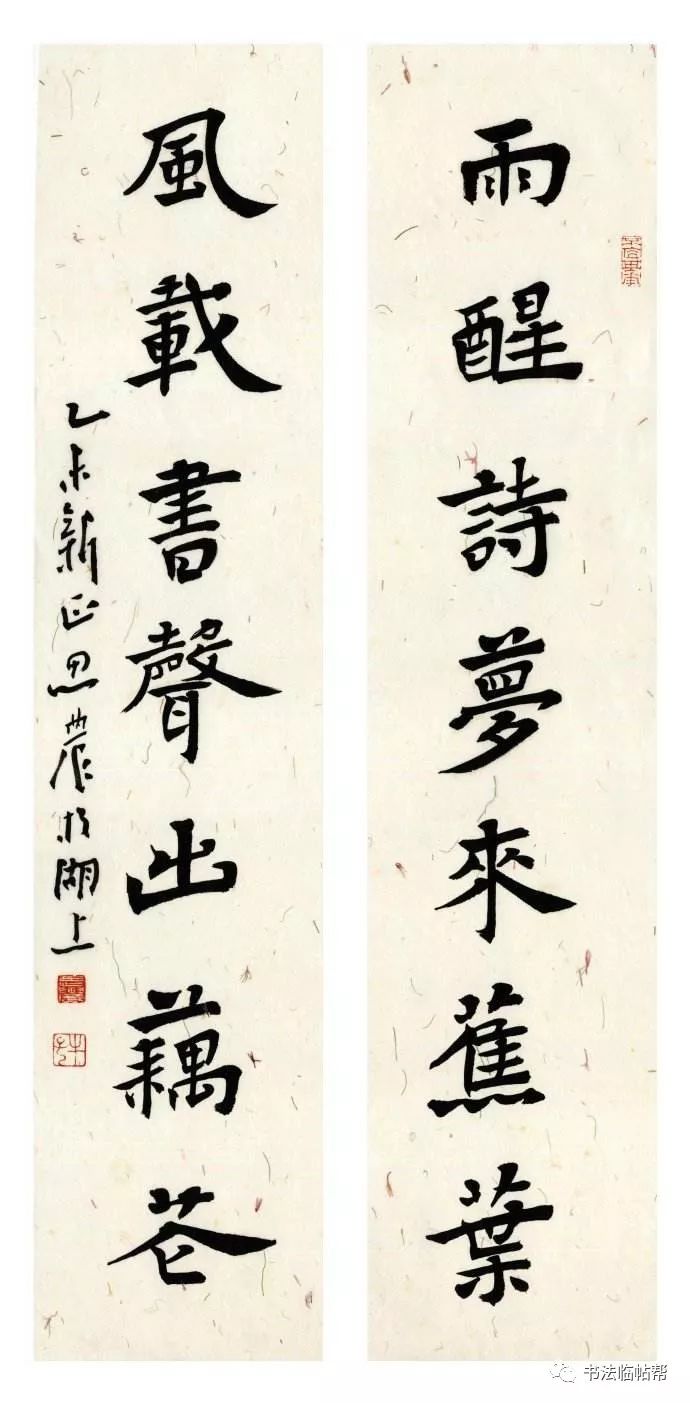 雨醒詩夢來蕉葉
風載書聲出藕花
乙未新正思農於湖上
书法临帖帮